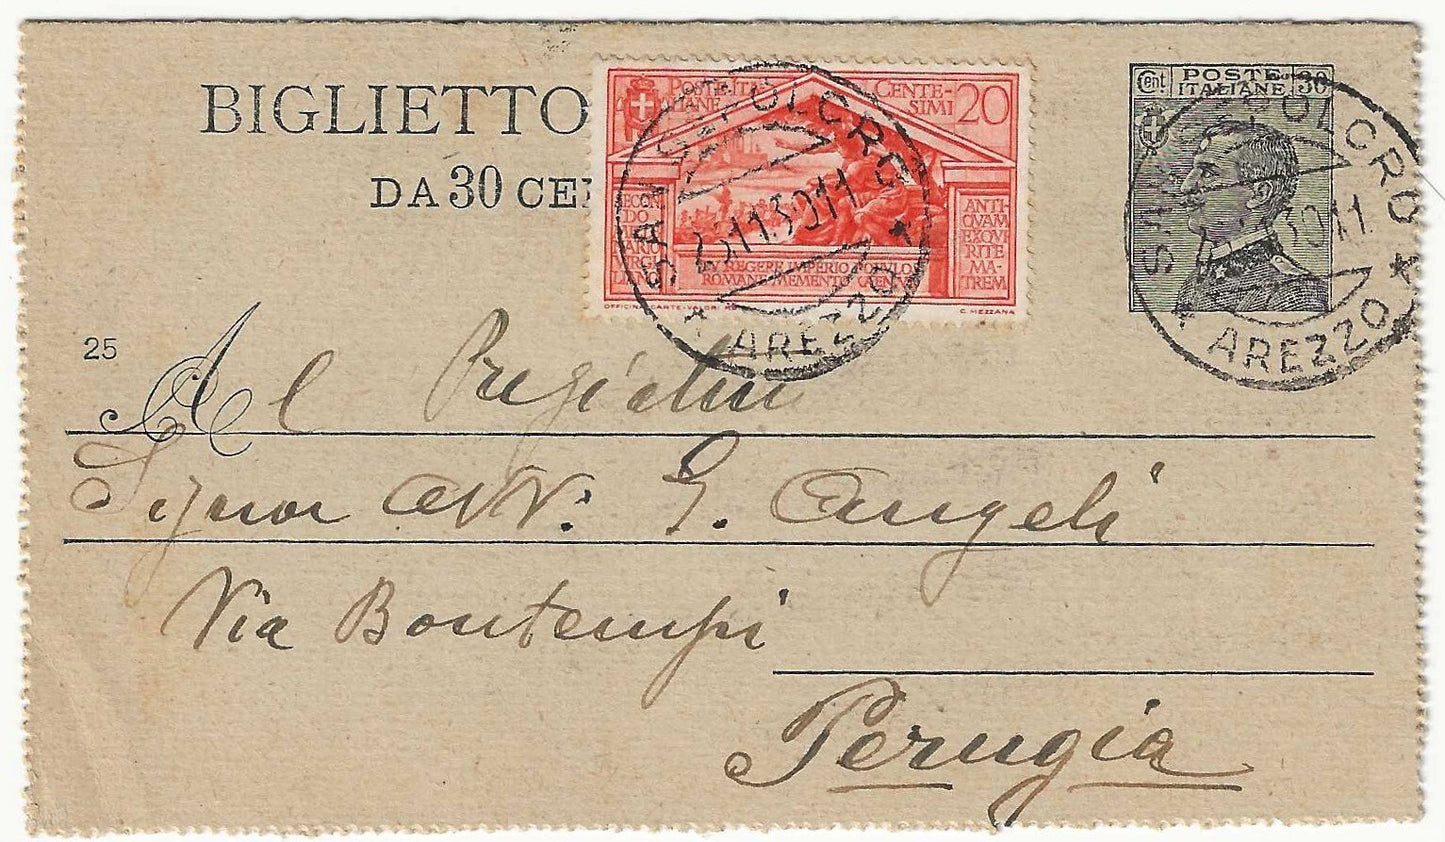 BIGLIETTO
DA 30 CE
POSTE ITALIANE
CENTESIMI 20
SECONDO
ANTIQVAM EXQVIRITE MATREM
TV REGERE IMPERIO POPVLOS
ROMANE MEMENTO
C. MEZZANA
SAN SEPOLCRO
23.11.30.11
AREZZO
Cent POSTE ITALIANE 30
SEPOLCRO
30.11
AREZZO
25
Al Pregiatmo
Signor Avv. G. Angeli
Via Bontempi
Perugia